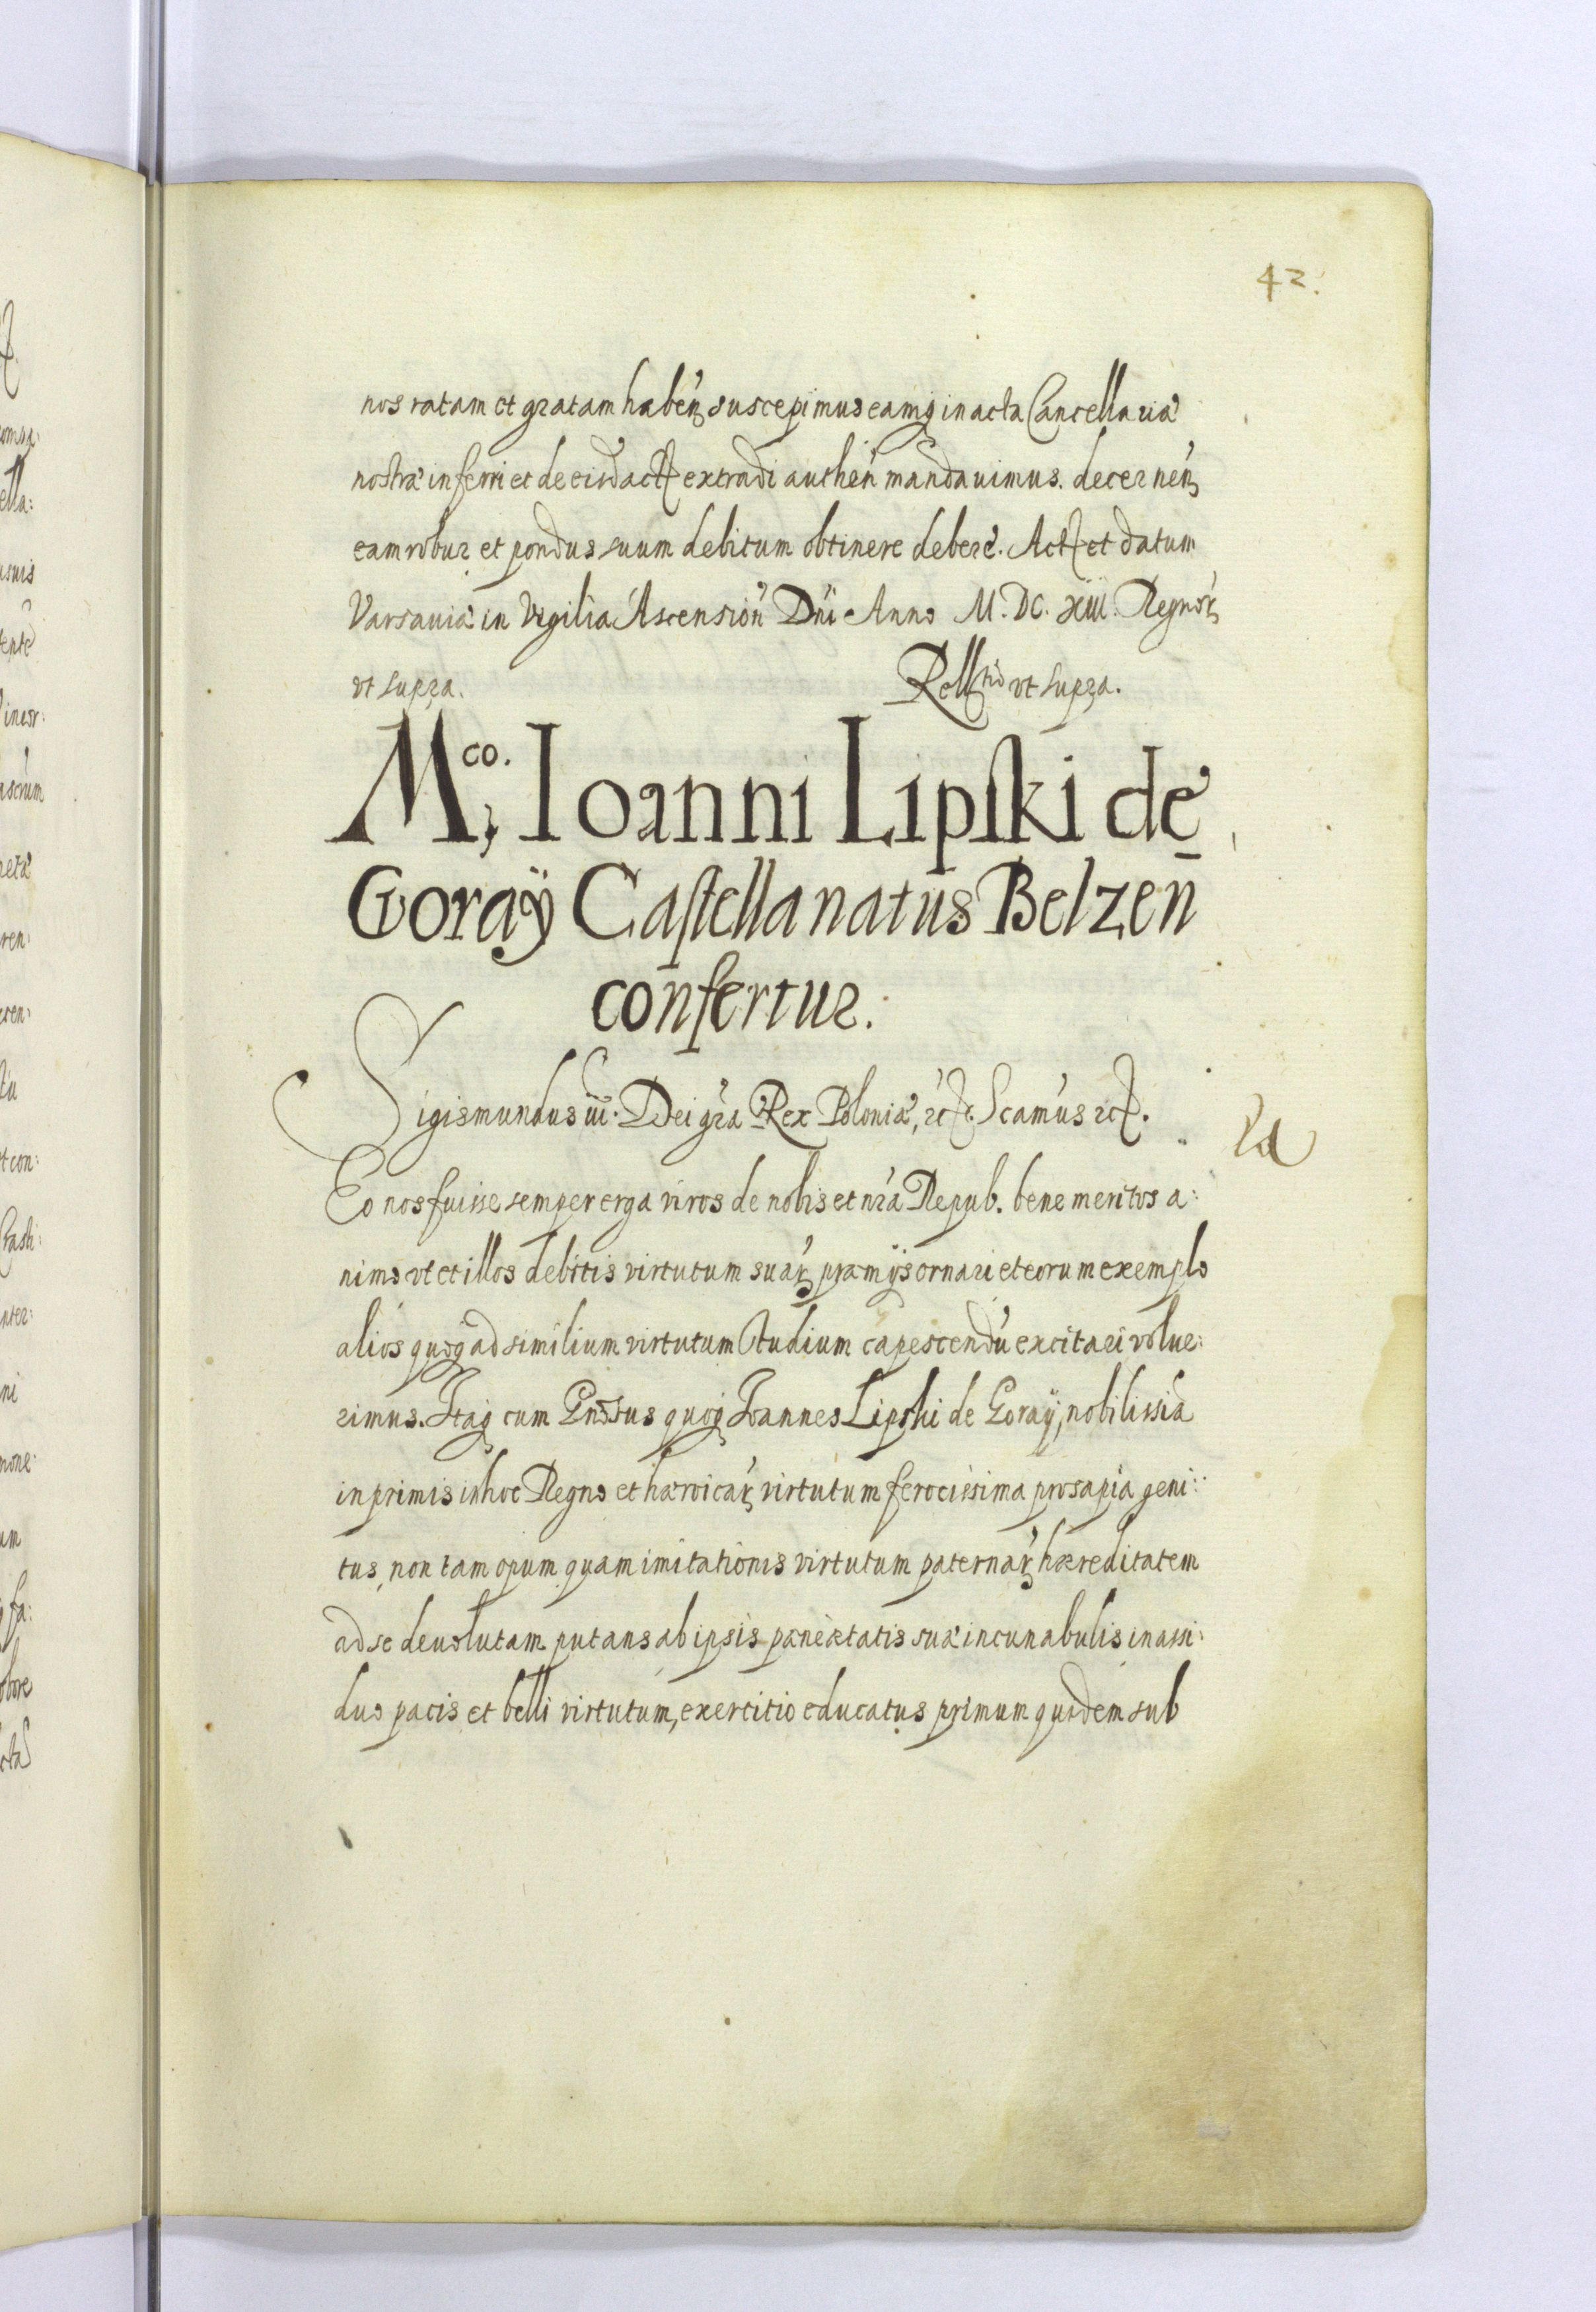 42.
nos ratam et gratam habeñ suscepimus eamq in acta Cancellariæ
nostræ inferri et de eisd act extradi autheñ mandauimus. decerneñ
eam robur et pondus suum debitum obtinere debere. Act et datum
Varsauiæ in Vigilia Ascensioñ Dñi Anno M. DC. XIII. Regnor
vt supra. Rell vt supra.
M.co Ioanni Lipſki de
Goraÿ Caſtellanatus Belzeñ
confertur.
Sigismundus iii. Dei gra Rex Poloniæ, etc. Scamus etc.
Eo nos fuisse semper erga viros de nobis et nra Repub. bene meritos a:
nimo vt et illos debitis virtutum suar præmijs ornari et eorum exemplo
alios quoq ad similium virtutum studium capescendu excitari volue:
rimus. Itaq cum Gnosus quoq Ioannes Lipski de Goraÿ, nobilissia
inprimis in hoc Regno et hæroicar virtutum ferocissima prosapia geni:
tus, non tam opum quam imitationis virtutum paternar hæreditatem
ad se deuolutam putans ab ipsis pæne ætatis suæ incunabulis in assi:
duo pacis et belli virtutum, exercitio educatus primum quidem sub